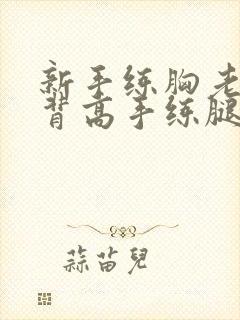 新手练胸老
背高手练腿
蒜苗兒